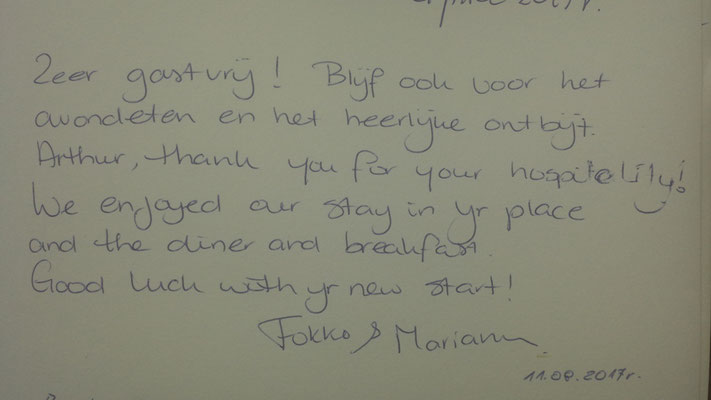 2017r.
Zeer gastvrij! Blijf ook voor het
avondeten en het heerlijke ontbijt.
Arthur, thank you for your hospitelity!
We enjoyed our stay in yr place
and the diner and breakfast.
Good luck with yr new start!
Fokko & Mariann
11.08.2017r.